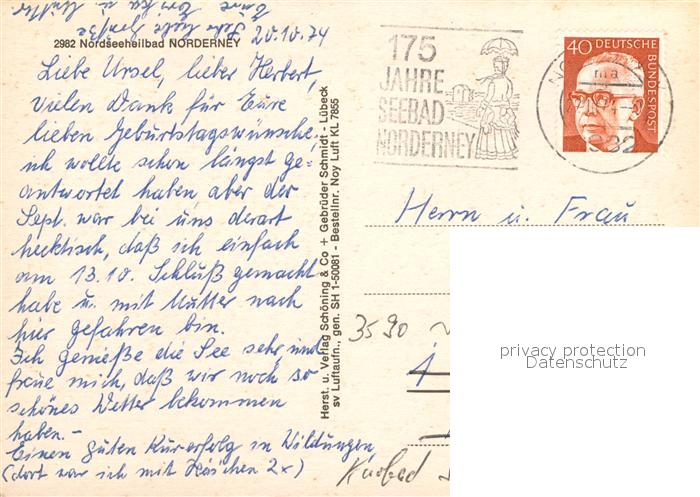 2982 Nordseeheilbad NORDERNEY
20.10.74
Liebe Ursel, lieber Herbert,
Vielen Dank für Eure
lieben Geburtstagswünsche.
ich wollte schon längst ge-
antwortet haben aber der
Sept. war bei uns derart
hecktisch, daß ich einfach
am 13.10. Schluß gemacht
habe u. mit Mutter nach
hier gefahren bin.
Ich genieße die See sehr und
freue mich, daß wir noch so
schönes Wetter bekommen
haben.-
Einen guten Kurerfolg in Wildungen,
(dort war ich mit Häschen 2x)
Eure
u. Mutter
Herst. u. Verlag Schöning & Co + Gebrüder Schmidt · Lübeck
sv Luftaufn., gen. SH 1-50081 - Bestellnr. Noy Luft KL 7855
175
JAHRE
SEEBAD
NORDERNEY
40 DEUTSCHE
BUNDESPOST
ma
982
Herrn u. Frau
3590
privacy protection
Datenschutz